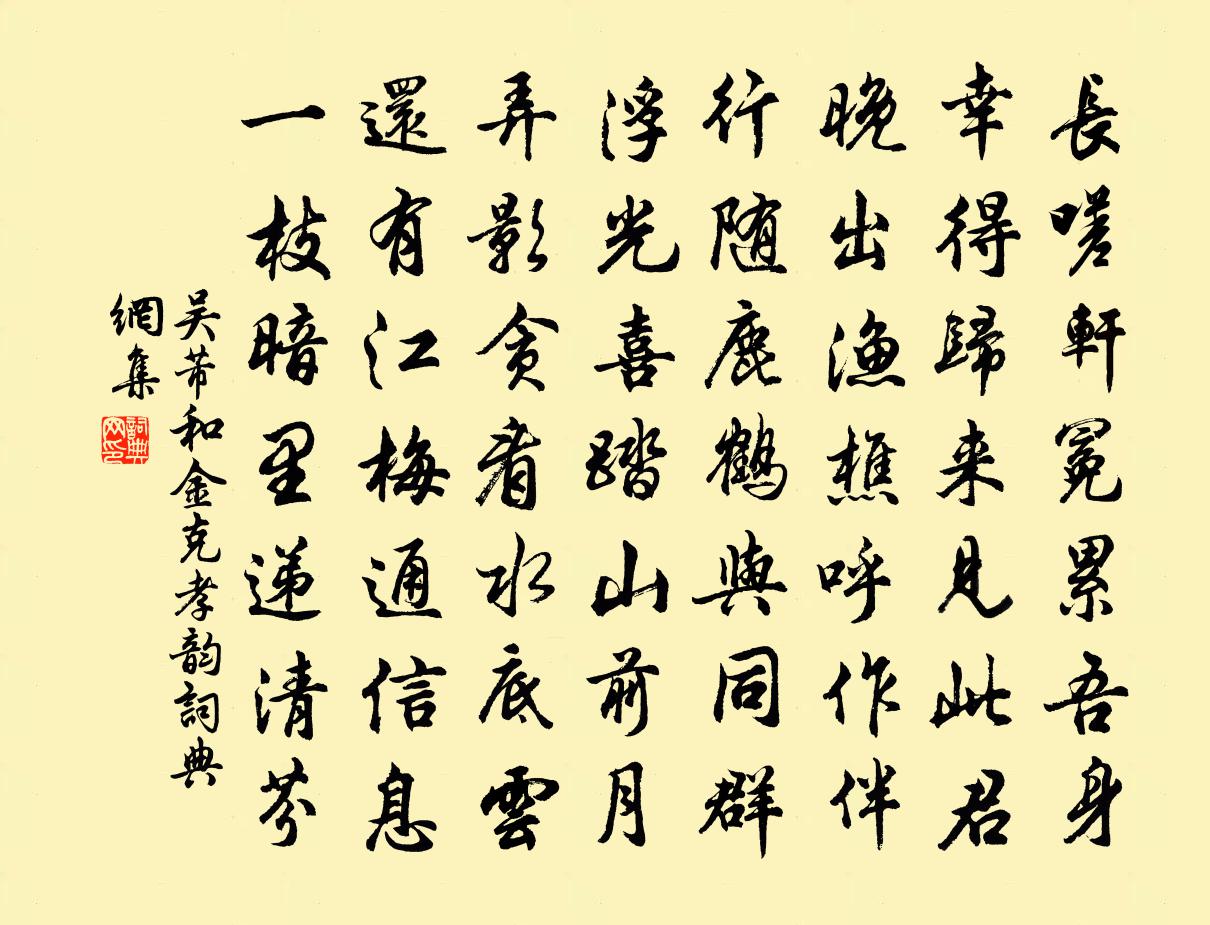 長嗟軒冕累吾身
幸得歸来見此君
晚出漁樵呼作伴
行随鹿鶴與同群
浮光喜踏山前月
弄影貪看水底雲
還有江梅通信息
一枝暗里递清芬
吴芾和金克孝韵詞典
網集
詞典
网印